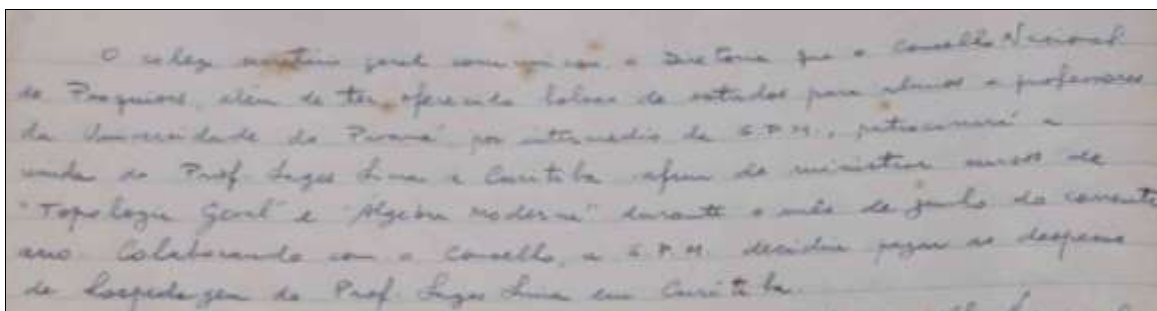 O colega secretário geral comunicou a Diretoria que o Conselho Nacional
de Pesquisas, além de ter oferecido bolsas de estudos para alunos e professores
da Universidade do Paraná por intermedio da S.P.M., patrocinará a
vinda do Prof. Lages Lima a Curitiba afim de ministrar cursos de
"Topologia Geral" e "Algebra Moderna" durante o mês de junho do corrente
ano. Colaborando com o Conselho, a S.P.M. decidiu pagar as despesas
de hospedagem do Prof. Lages Lima em Curitiba.